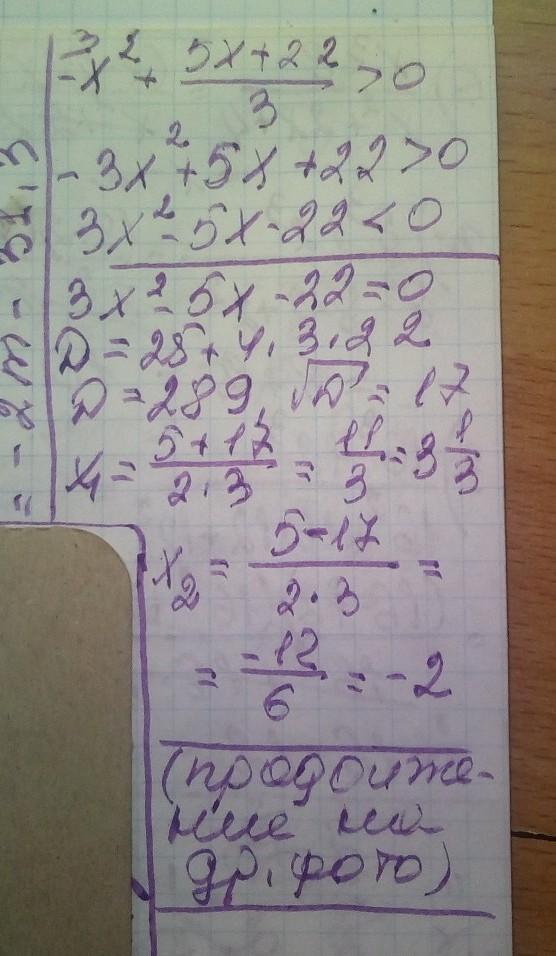 -x² + (5x+22)/3 > 0
3
-3x²+5x+22>0
3x²-5x-22<0
3x²-5x-22=0
D=25+4·3·22
D=289, √D=17
x₁= (5+17)/(2·3) = 11/3 =3 1/3
x₂ = (5-17)/(2·3) =
= -12/6 = -2
(продолже-
ние на
др. фото)
= -2m-31,3